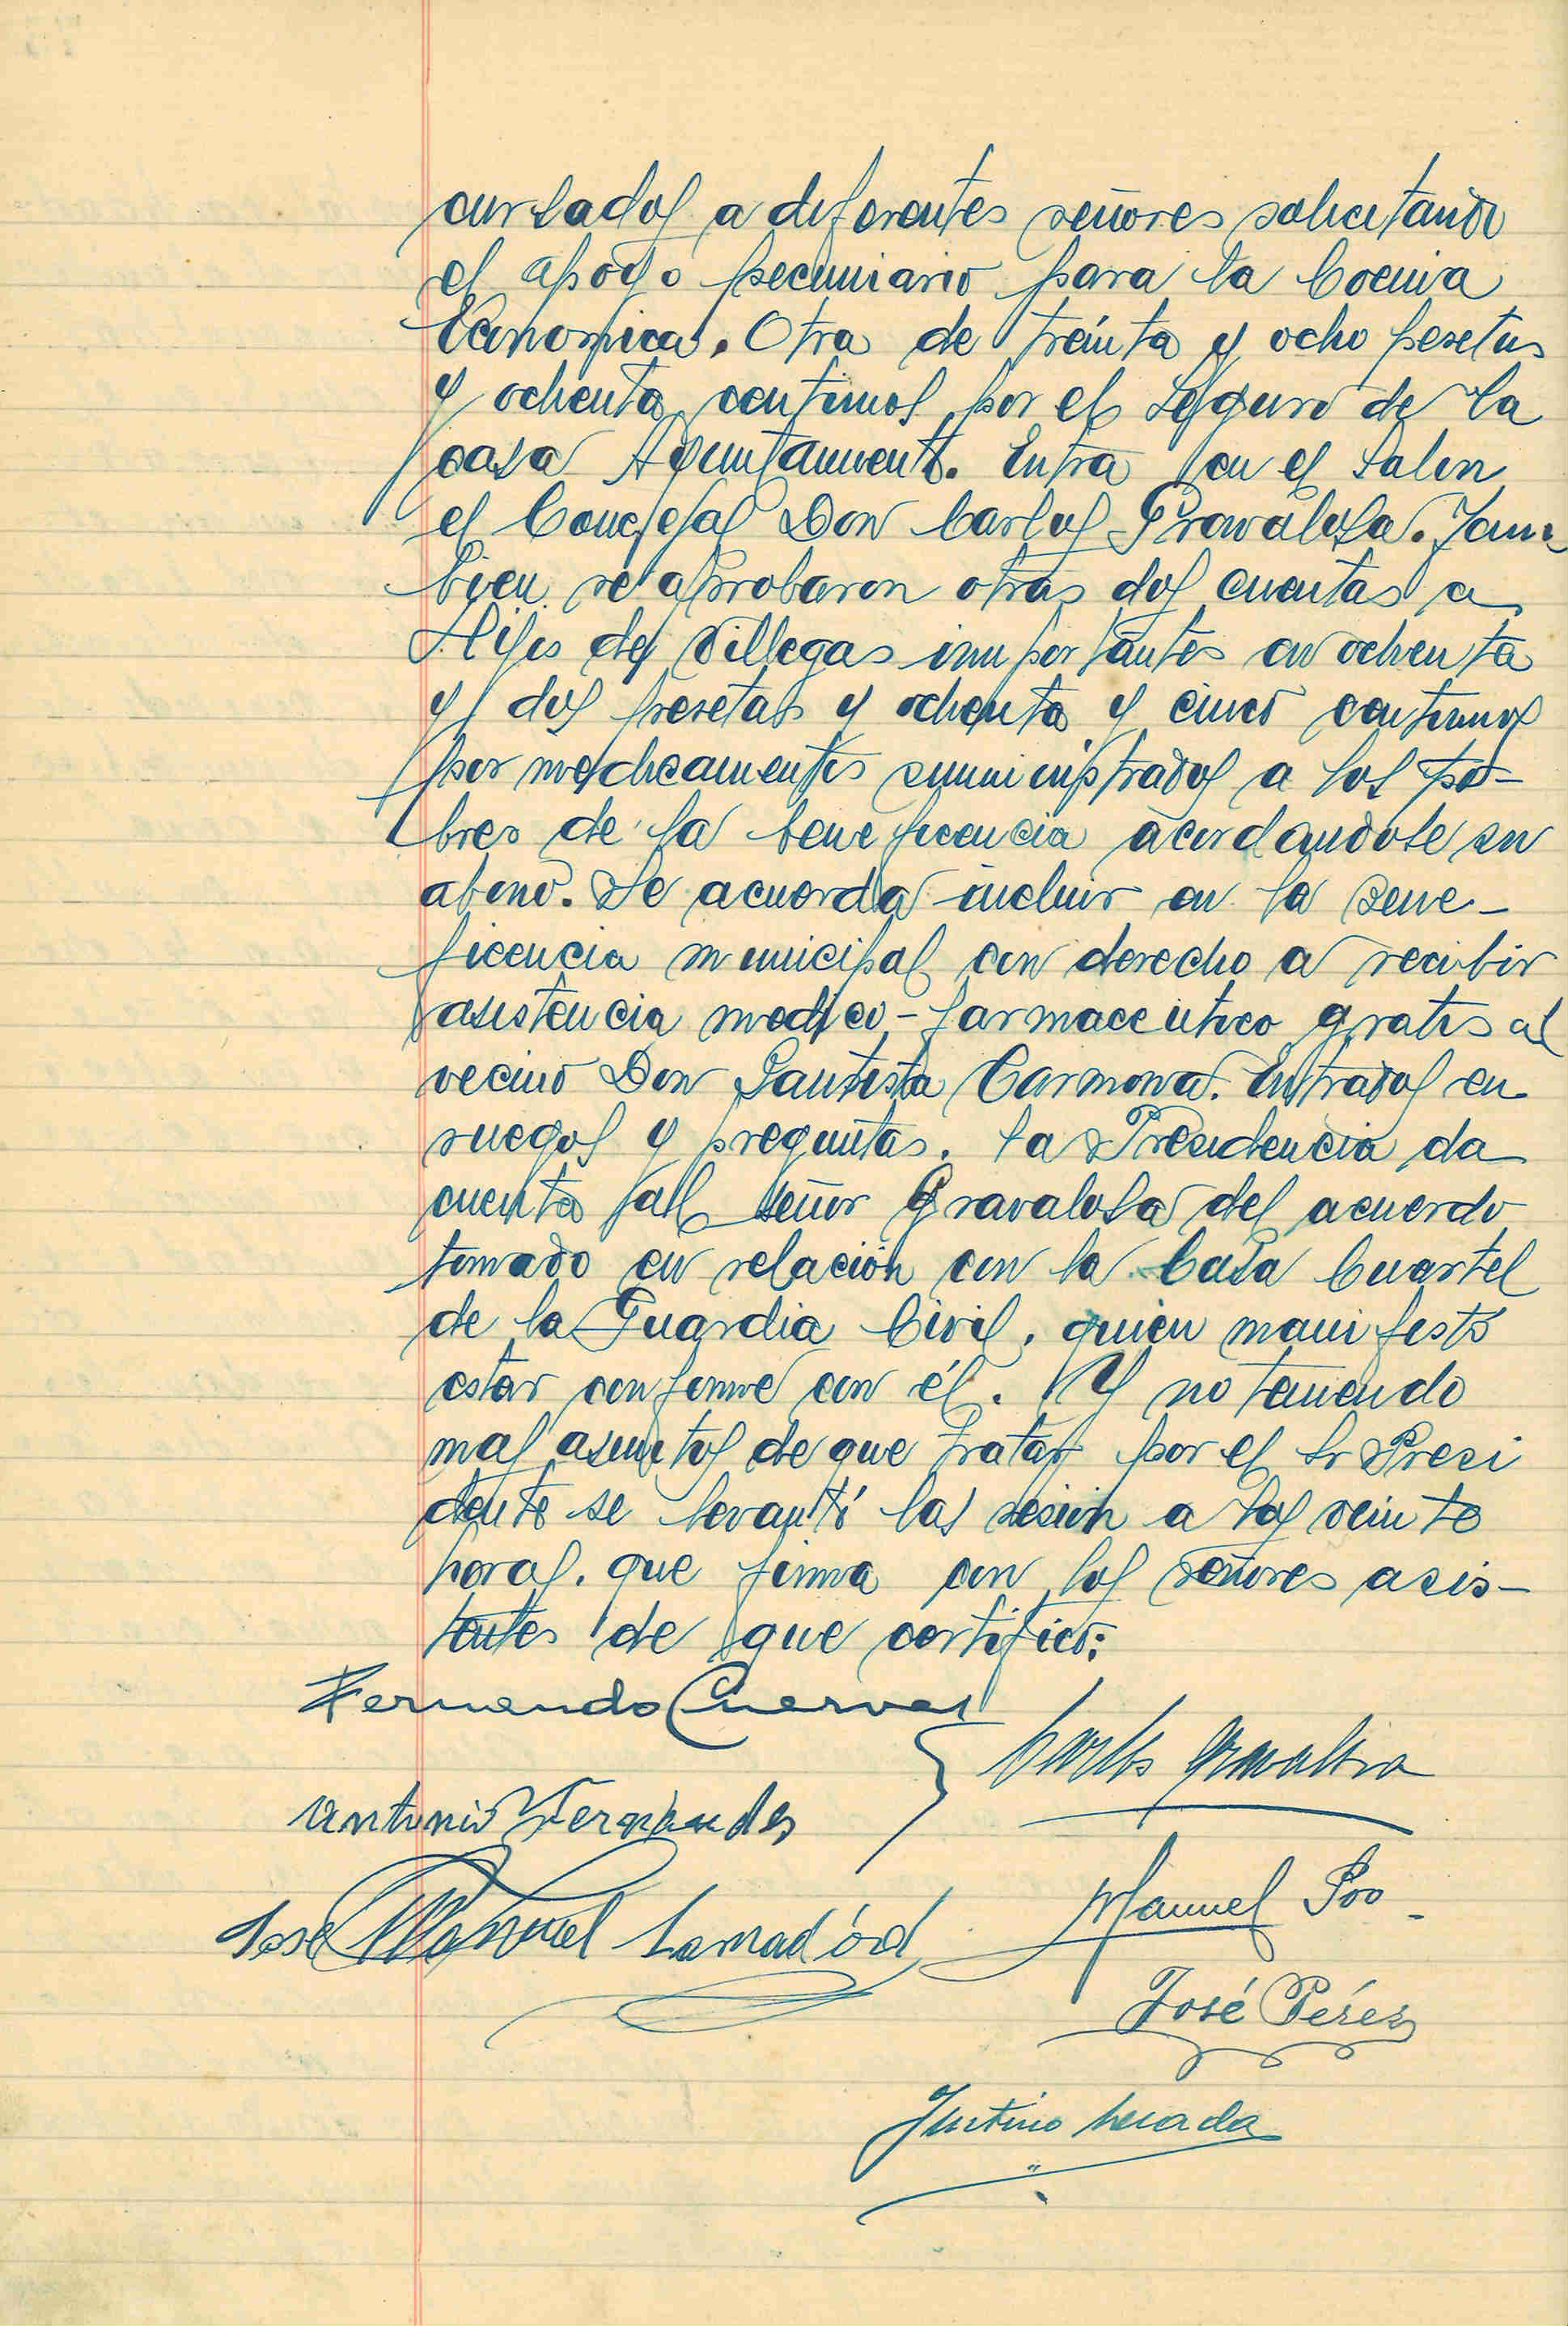 cursados a diferentes señores solicitando
el apoyo pecuniario para la Cocina
Economica. Otra de treinta y ocho pesetas
y ochenta centimos por el Seguro de la
casa Ayuntamiento. Entra en el Salon
el Concejal Don Carlos Gravalosa. Tam-
bien se aprobaron otras dos cuentas a
Hijos de Villegas importantes en ochenta
y dos pesetas y ochenta y cinco centimos
por medicamentos suministrados a los po-
bres de la beneficencia acordandose su
abono. Se acuerda incluir en la Bene-
ficencia municipal con derecho a recibir
asistencia medico-farmaceutico gratis al
vecino Don Bautista Carmona. Entrados en
ruegos y preguntas. La Presidencia da
cuenta al señor Gravalosa del acuerdo
tomado en relación con la Casa Cuartel
de la Guardia Civil, quien manifestó
estar conforme con él. Y no teniendo
mas asuntos de que tratar por el Sr Presi
dente se levantó la sesion a las veinte
horas, que firma con los señores asis-
tentes de que certifico:
Fernando Cuervas
Carlos Gravalosa
Antonio Fernandes
José Manuel Lamadrid
Manuel Poo
José Pérez
Justino